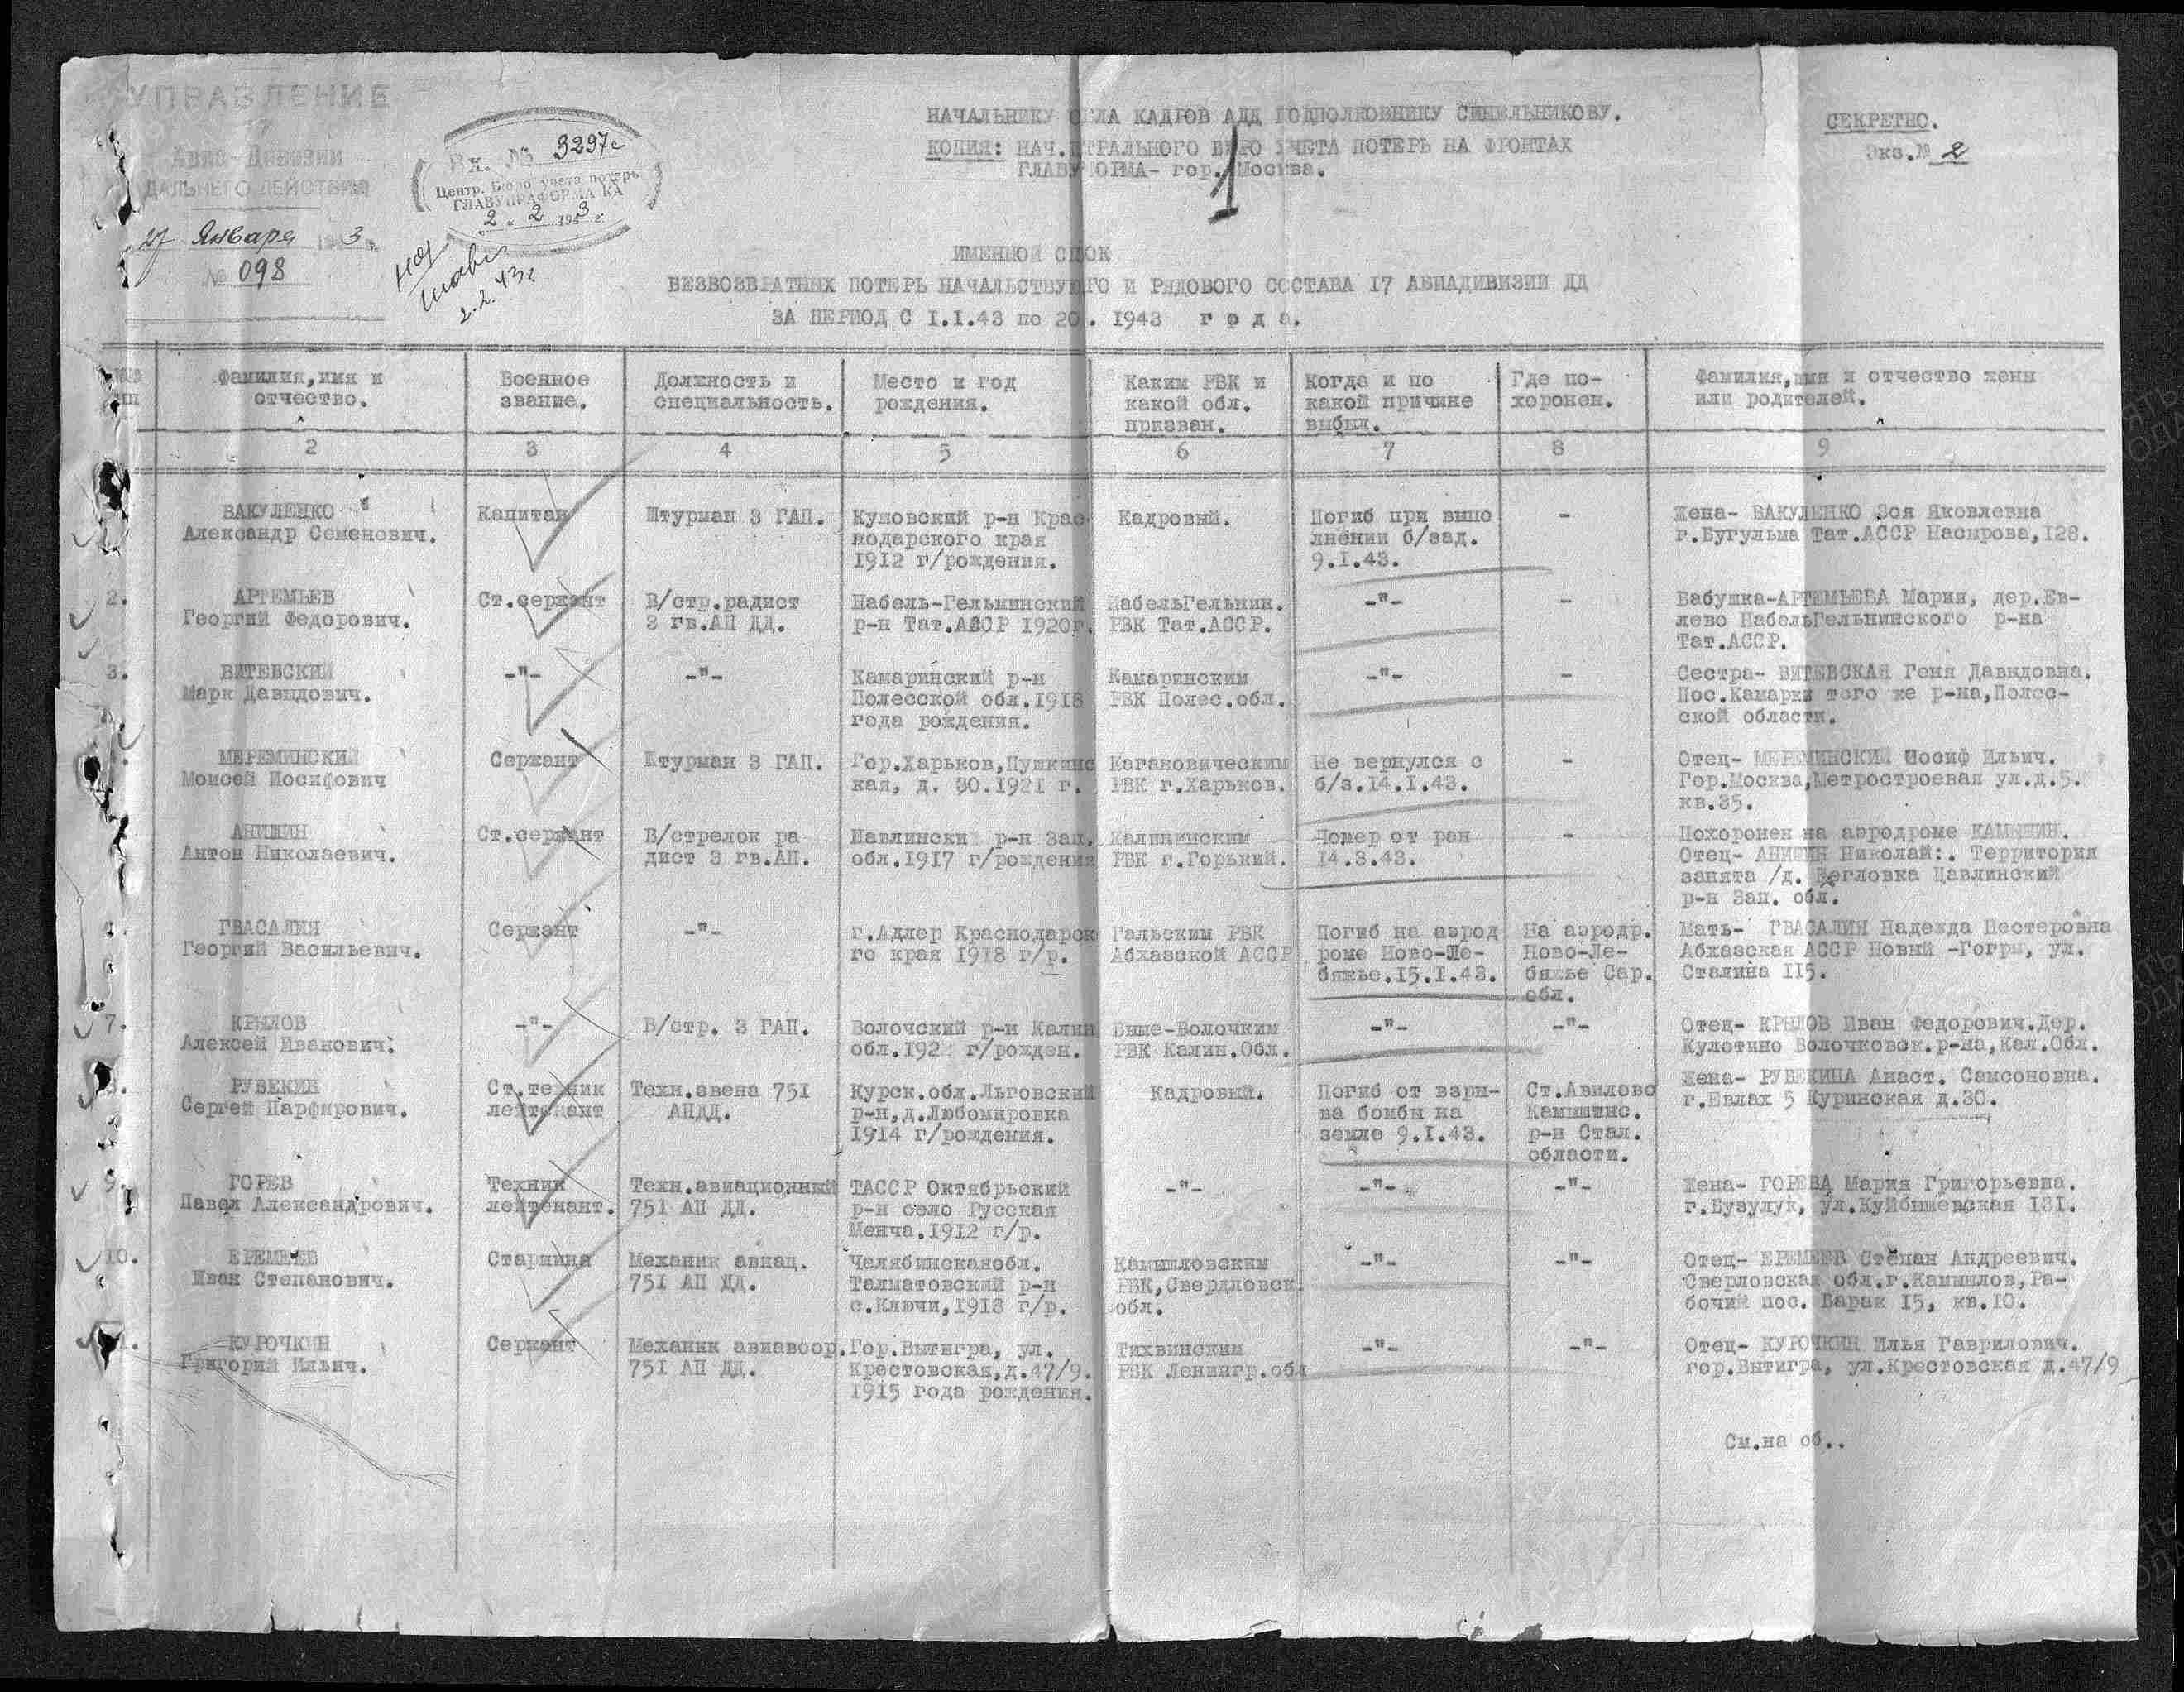 УПРАВЛЕНИЕ
17
Авио-Дивизии
ДАЛЬНЕГО ДЕЙСТВИЯ
27 Января 1943 г.
№ 098
Вх. № 3297с
Центр. Бюро учета потерь
ГЛАВУПРАФОРМА КА
"2" 2 1943 г.
2.2.43г
НАЧАЛЬНИКУ ОТДЕЛА КАДРОВ АДД ПОДПОЛКОВНИКУ СИНЕЛЬНИКОВУ.
КОПИЯ: НАЧ. ТРАЛЬНОГО БЮРО УЧЕТА ПОТЕРЬ НА ФРОНТАХ
ГЛАВУ ОРМА- гор. Москва.
1
СЕКРЕТНО.
Экз.№ 2
ИМЕННОЙ СПИСОК
БЕЗВОЗВРАТНЫХ ПОТЕРЬ НАЧАЛЬСТВУЮЩЕГО И РЯДОВОГО СОСТАВА 17 АВИАДИВИЗИИ ДД
ЗА ПЕРИОД С I.I.43 по 20. . 1943 г о д а.
Фамилия,имя и отчество.
Военное звание.
Должность и специальность.
Место и год рождения.
Каким РВК и какой обл. призван.
Когда и по какой причине выбыл.
Где похоронен.
Фамилия,имя и отчество жены или родителей.
2 3 4 5 6 7 8 9
ВАКУЛЕНКО Капитан Штурман 3 ГАП. Кущовский р-н Крас- Кадровый. Погиб при выпо - Жена- ВАКУЛЕНКО Зоя Яковлевна
Александр Семенович. нодарского края лнении б/зад. г.Бугульма Тат.АССР Насырова,128.
1912 г/рождения. 9.I.43.
2. АРТЕМЬЕВ Ст.сержант В/стр.радист Набель-Гельнинский НабельГельнин. -"- - Бабушка-АРТЕМЬЕВА Мария, дер.Ев-
Георгий Федорович. 3 гв.АП ДД. р-н Тат.АССР 1920г. РВК Тат.АССР. лево НабельГельнинского р-на
Тат.АССР.
3. ВИТЕВСКИЙ -"- -"- Камаринский р-н Камаринским -"- - Сестра- ВИТЕВСКАЯ Геня Давыдовна.
Марк Давыдович. Полесской обл.1918 РВК Полес.обл. Пос.Камарки того же р-на,Полес-
года рождения. ской области.
МЕРЕМИНСКИЙ Сержант Штурман 3 ГАП. Гор.Харьков,Пушкинс Кагановическим Не вернулся с - Отец- МЕРЕМИНСКИЙ Иосиф Ильич.
Моисей Иосифович кая, д. 80.1921 г. РВК г.Харьков. б/з.14.I.43. Гор.Москва,Метростроевая ул.д.5.
кв.35.
АНИШИН Ст.сержант В/стрелок ра Навлински р-н Зап. Калининским Помер от ран - Похоронен на аэродроме КАМЫШИН.
Антон Николаевич. дист 3 гв.АП. обл.1917 г/рождения РВК г.Горький. 14.3.43. Отец- АНИШИН Николай:. Территория
занята /д. Щегловка Цавлинский
р-н Зап. обл.
ГВАСАЛИЯ Сержант -"- г.Адлер Краснодарск Гальским РВК Погиб на аэрод На аэродр. Мать- ГВАСАЛИЯ Надежда Нестеровна
Георгий Васильевич. го края 1918 г/р. Абхазской АССР роме Ново-Ле- Ново-Ле- Абхазская АССР Новый -Гогры, ул.
бяжье.15.I.43. бяжье Сар. Сталина 115.
обл.
7. КРЫЛОВ -"- В/стр. 3 ГАП. Волочский р-н Калин Выше-Волочким -"- -"- Отец- КРЫЛОВ Иван Федорович.Дер.
Алексей Иванович. обл.192 г/рожден. РВК Калин.Обл. Кулотино Волочковск.р-на,Кал.Обл.
8. РУБЕКИН Ст.техник Техн.звена 751 Курск.обл.Льговский Кадровый. Погиб от взры- Ст.Авилово Жена- РУБЕКИНА Анаст. Самсоновна.
Сергей Парфирович. лейтенант АПДД. р-н,д.Любомировка ва бомбы на Камышинс. г.Евлах 5 Куринская д.30.
1914 г/рождения. земле 9.I.43. р-н Стал.
области.
9. ГОРЕВ Техник Техн.авиационный ТАССР Октябрьский -"- -"- -"- Жена- ГОРЕВА Мария Григорьевна.
Павел Александрович. лейтенант. 751 АП ДД. р-н село Русская г.Бузулук, ул.Куйбышевская 131.
Менча.1912 г/р.
10. ЕРЕМЕЕВ Старшина Механик авиац. Челябинсканобл. Камышловским -"- -"- Отец- ЕРЕМЕЕВ Степан Андреевич.
Иван Степанович. 751 АП ДД. Талматовский р-н РВК,Свердловск. Сверловская обл.г.Камышлов,Ра-
с.Ключи,1918 г/р. обл. бочий пос. Барак 15, кв.10.
КУРОЧКИН Сержант Механик авиавоор. Гор.Вытигра, ул. Тихвинским -"- -"- Отец- КУРОЧКИН Илья Гаврилович.
Григорий Ильич. 751 АП ДД. Крестовская,д.47/9. РВК Ленингр.обл гор.Вытигра, ул.Крестовская д.47/9
1915 года рождения.
См.на об..